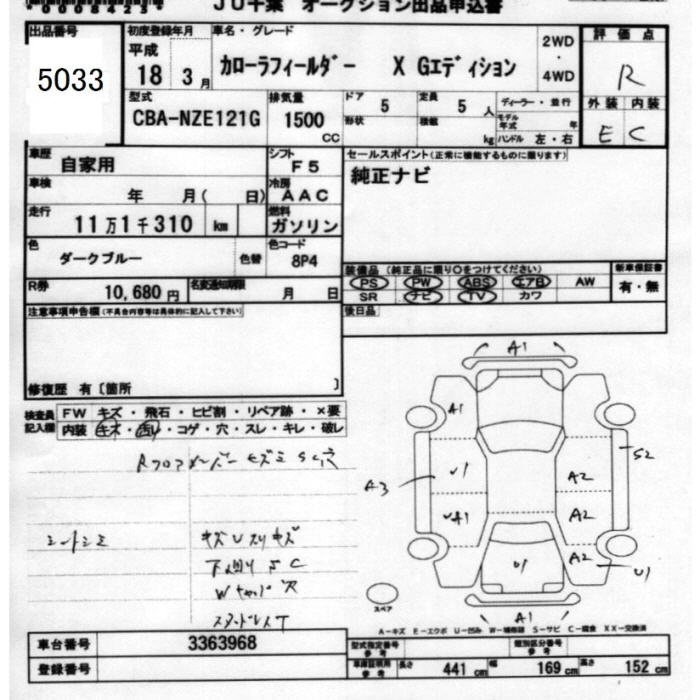 JU千葉 オークション出品申込書
出品番号 5033
初度登録年月 平成 18 3月
車名・グレード カローラフィールダー X Gエディション
2WD・4WD
評価点 R
外装 内装
E C
型式 CBA-NZE121G
排気量 1500 CC
ドア 5 形状
定員 5人 積載 kg
ディーラー・並行
モデル年式 年
ハンドル 左・右
車歴 自家用
シフト F5
セールスポイント(正常に機能するものに限ります)
純正ナビ
車検 年 月( 日)
冷房 AAC
走行 11万1千310 km
燃料 ガソリン
色 ダークブルー 色替
色コード 8P4
装備品 (純正品に限り○をつけてください)
新車保証書
PS PW ABS エアB AW
有・無
SR ナビ TV カワ
R券 10,680円
名変通知期限 月 日
後日品
注意事項申告欄(不具合内容等は具体的に記入して下さい)
修復歴 有〔箇所 〕
検査員記入欄
FW キズ・飛石・ヒビ割・リペア跡・×要
内装 キズ・凹・コゲ・穴・スレ・キレ・破レ
シートシミ
キズUスリキズ
下回りSC
A1
A1
U1
A3
UA1
A2
S2
A2
A2
U1
U1
A1
スペア
A-キズ E-エクボ U-凹み W-補修跡 S-サビ C-腐食 XX-交換済
車台番号 3363968
型式指定番号 参考
類別区分番号 参考
登録番号
車庫証明用 参考
長さ 441 cm 幅 169 cm 高さ 152 cm